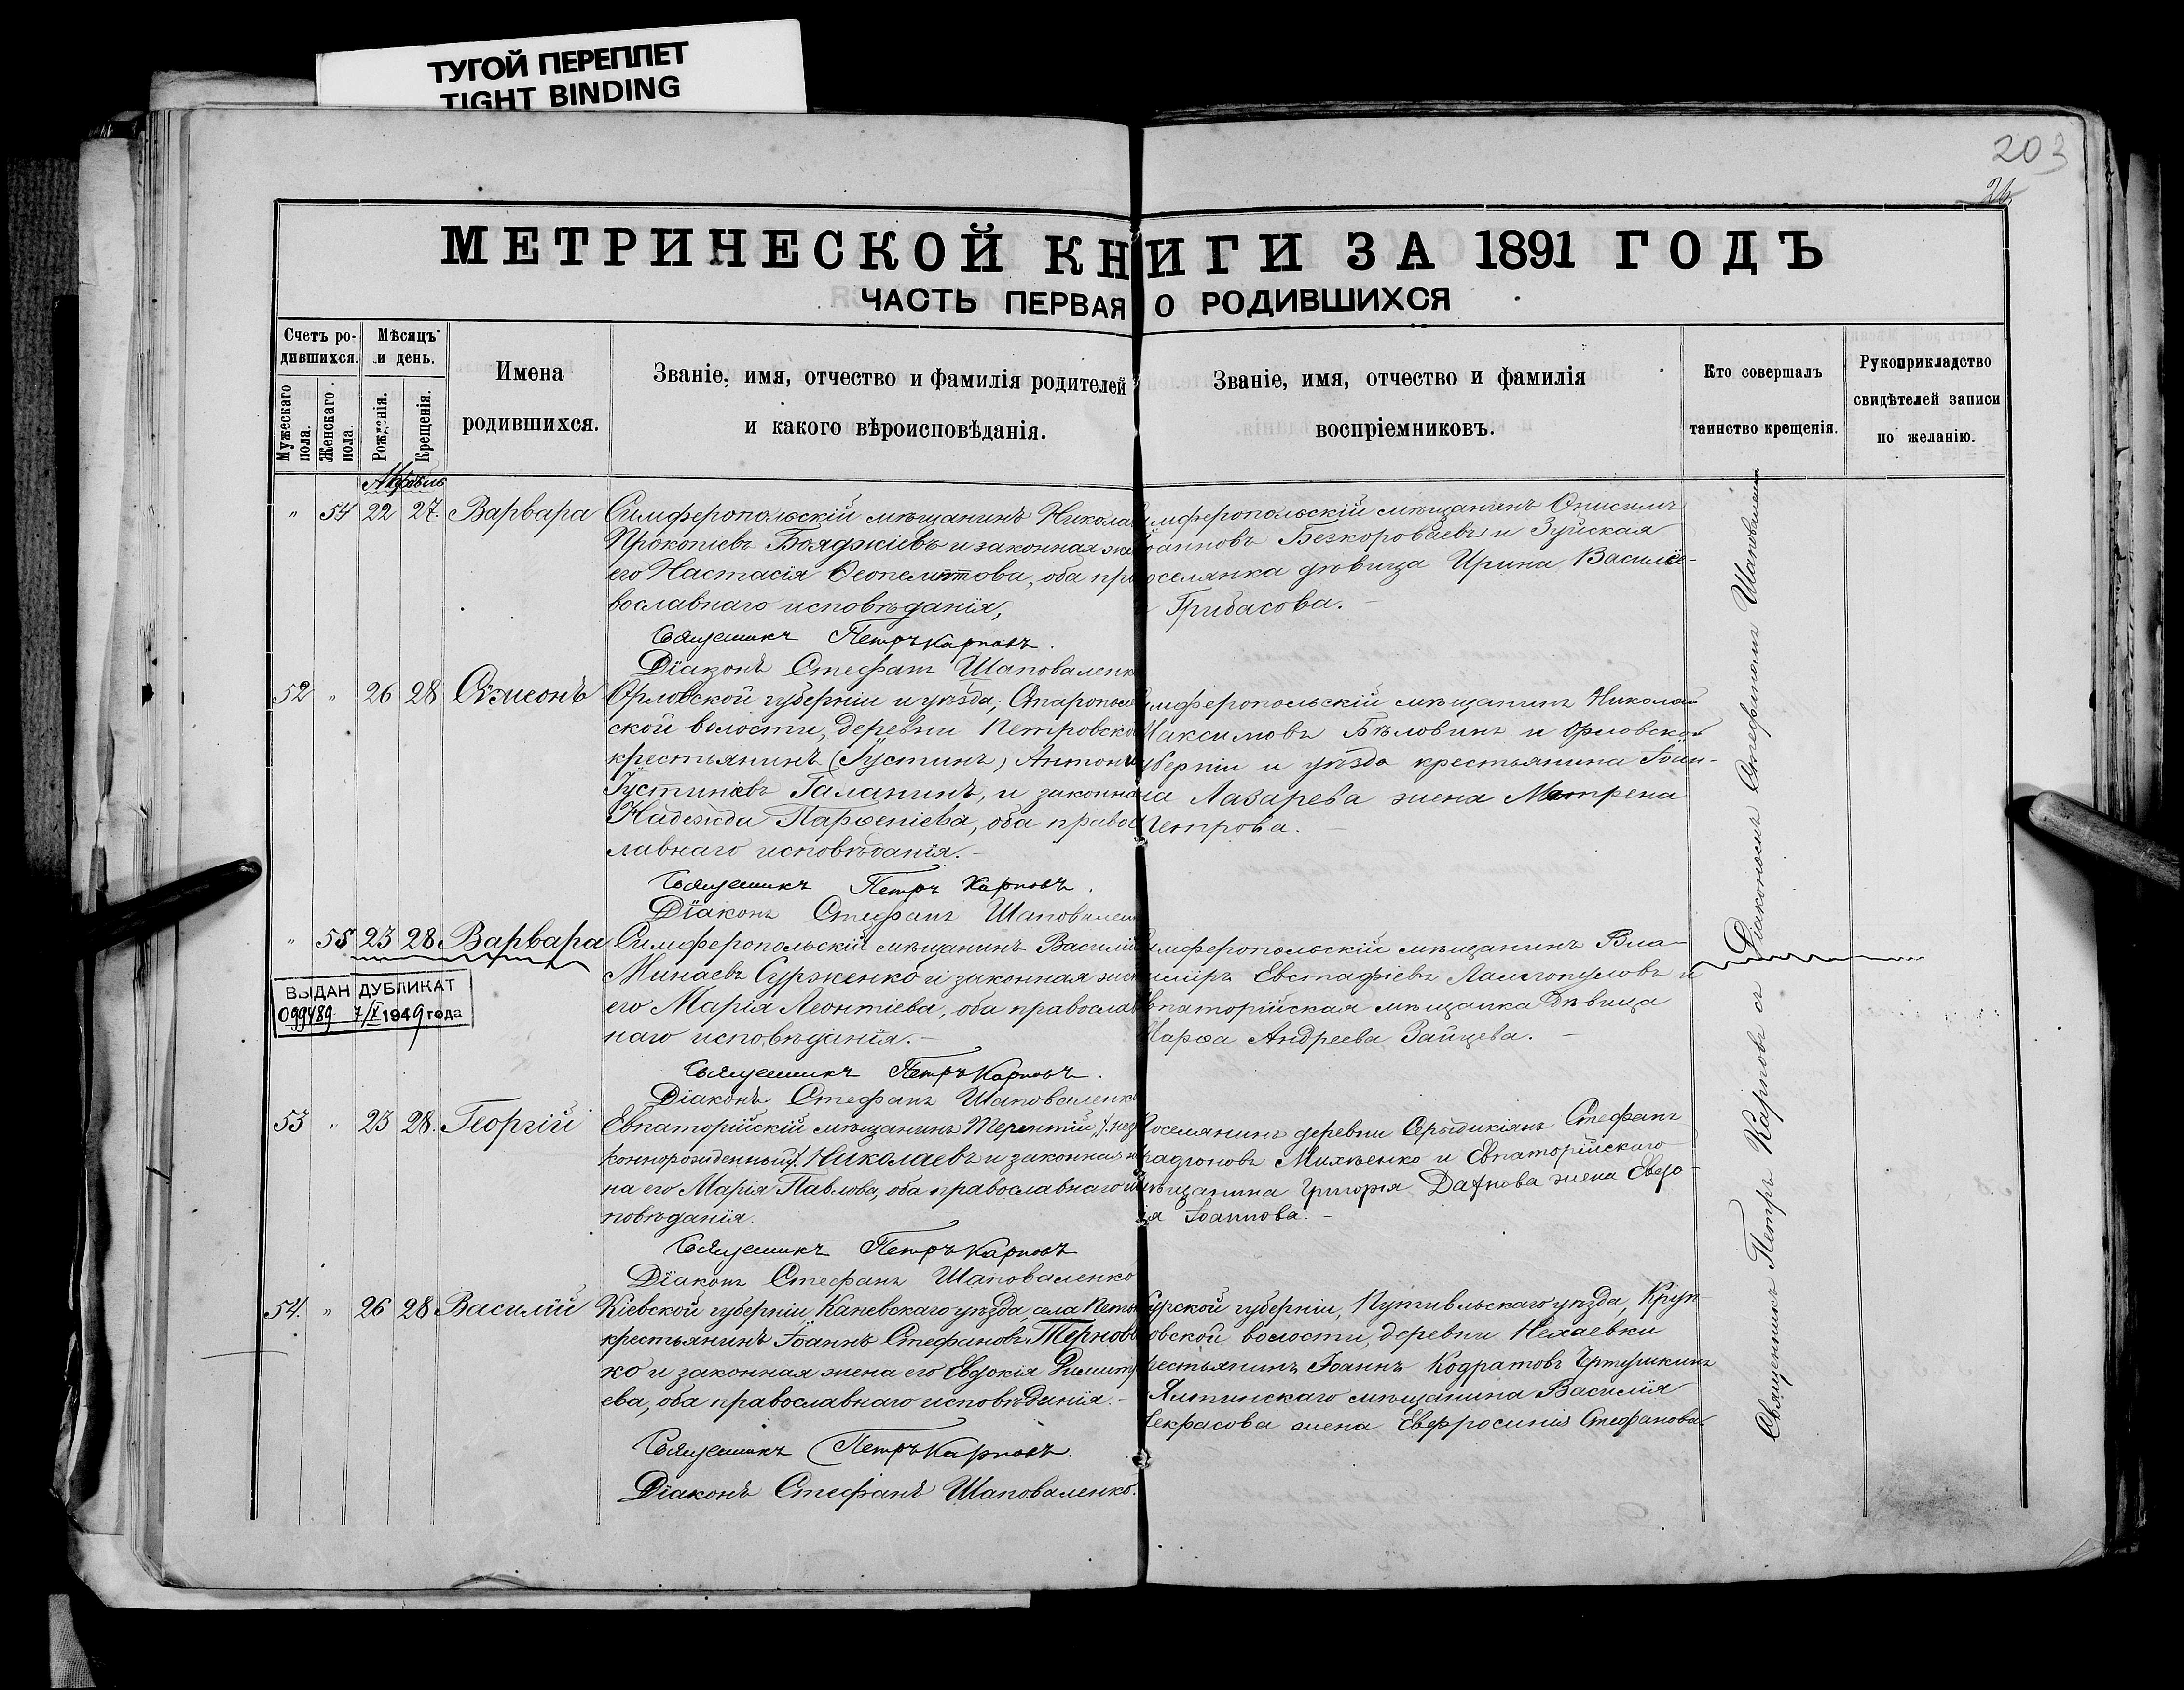 ТУГОЙ ПЕРЕПЛЕТ
TIGHT BINDING
203
26
МЕТРИЧЕСКОЙ КНИГИ ЗА 1891 ГОДЪ
ЧАСТЬ ПЕРВАЯ О РОДИВШИХСЯ
Счетъ ро-
дившихся.
Мужескаго
пола.
Женскаго
пола.
Мѣсяцъ
и день.
Рожденія.
Крещенія.
Имена
родившихся.
Званіе, имя, отчество и фамилія родителей
и какого вѣроисповѣданія.
Званіе, имя, отчество и фамилія
воспріемниковъ.
Кто совершалъ
таинство крещенія.
Рукоприкладство
свидѣтелей записи
по желанію.
Апрѣль
" 54 22 27. Варвара
Симферопольскій мѣщанинъ Никола
Прокопіевъ Бояджіевъ и законная же
его Настасія Ѳеопемптова, оба пра
вославнаго исповѣданія,
Священникъ Петръ Карповъ.
Діаконъ Стефанъ Шаповаленк
имферопольскій мѣщанинъ Онисимъ
оанновъ Безкороваевъ и Зуйская
оселянка дѣвица Ирина Василіе-
Грибасова.
52 " 26 28 Сѵмеонъ
Орловской губерніи и уѣзда,
ской волости, деревни Петровско
крестьянинъ (Іустинъ) Антон
Іустиніевъ Галанинъ, и законна
Надежда Парѳеніева, оба правос
лавнаго исповѣданія.
Священникъ Петръ Карповъ.
Діаконъ Стефанъ Шаповален
имферопольскій мѣщанинъ Николай
Максимовъ Бѣловинъ и Орловской
уберніи и уѣзда крестьянина Іоан-
на Лазарева жена Матрена
Петрова.
" 55 23 28 Варвара
Симферопольскій мѣщанинъ Василій
Минаевъ Сурженко и законная жен
его Марія Леонтіева, оба православ
наго исповѣданія.
Священникъ Петръ Карповъ.
Діаконъ Стефанъ Шаповаленко
имферопольскій мѣщанинъ Вла-
иміръ Евстафіевъ и
Евпаторійская мѣщанка дѣвица
Марѳа Андреева Зайцева.
ВЫДАН ДУБЛИКАТ
099489 7/X 1949 года
53 " 23 28. Георгій
Евпаторійскій мѣщанинъ Терентій,
коннорожденный). Николаевъ и законная
на его Марія Павлова, оба православнаго ис
повѣданія.
Священникъ Петръ Карповъ
Діаконъ Стефанъ Шаповаленко
Поселянинъ деревни Стефанъ
и Евпаторійскаго
мѣщанина Григорія жена Евдо-
ія Іоаннова.
54. " 26 28 Василій
Кіевской губерніи, Каневскаго уѣзда, села
крестьянинъ Іоаннъ Стефановъ Тернов
ко и законная жена его Евдокія Димитр
ева, оба православнаго исповѣданія.
Священникъ Петръ Карповъ.
Діаконъ Стефанъ Шаповаленко.
Курской губерніи, Путивльскаго уѣзда,
овской волости, деревни Нехаевки
рестьянинъ Іоаннъ Кодратовъ
Ялтинскаго мѣщанина Василія
Некрасова жена Евфросинія Стефанова.
Священникъ Петръ Карповъ съ Діакономъ Стефаномъ Шаповаленко